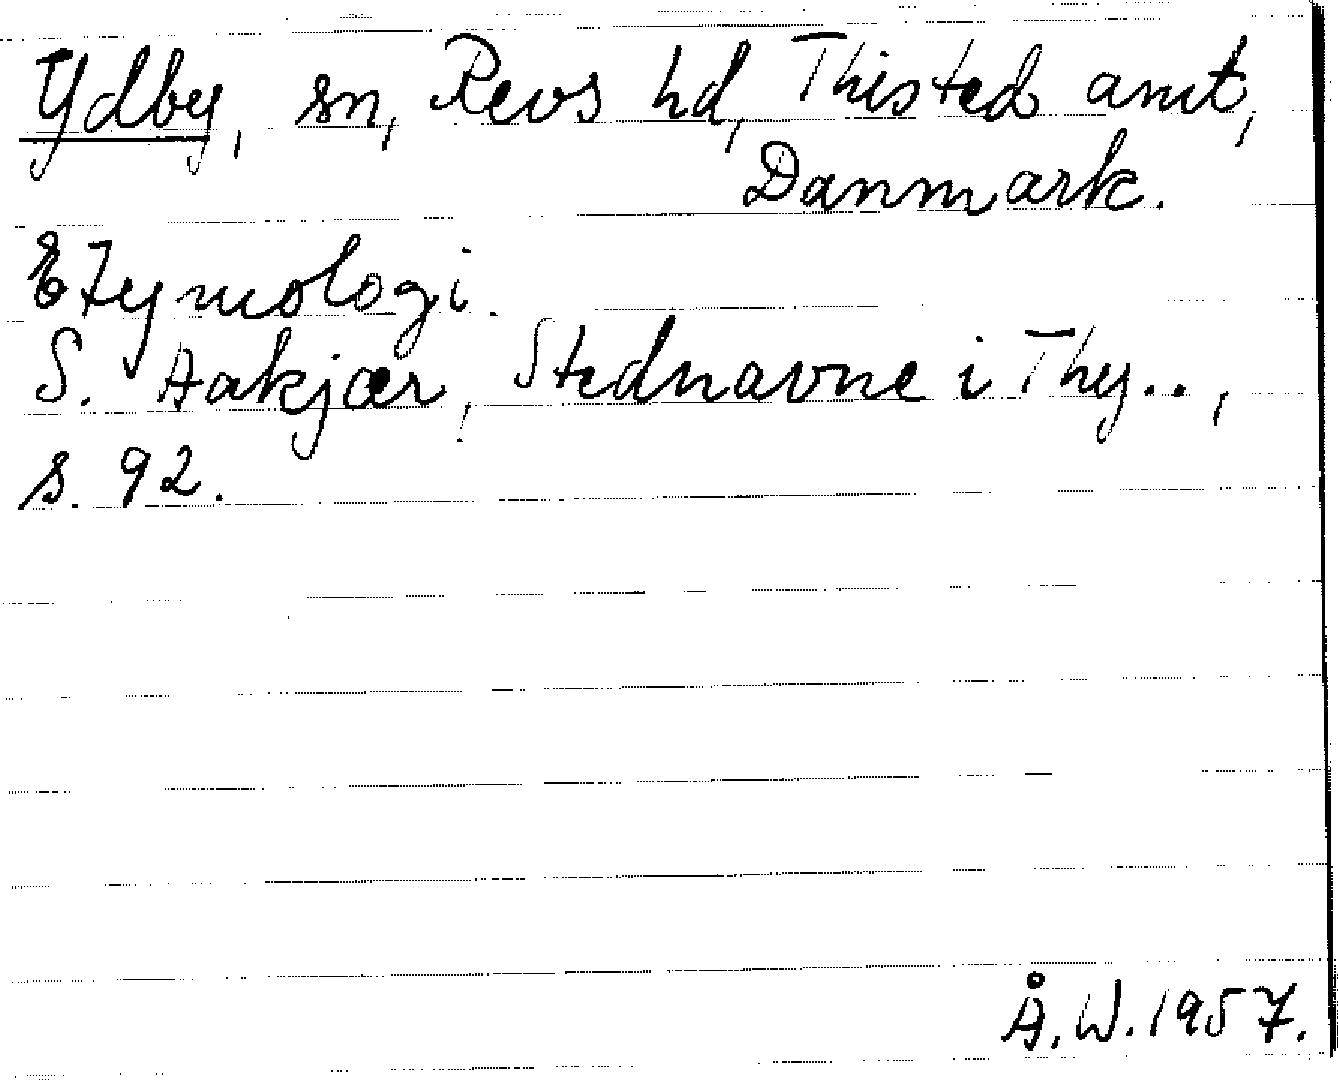 Ydby, sn, Revs hd, Thisted amt,
Danmark.
Etymologi.
S. Aakjær, Stednavne i Thy..,
s. 92.
Å. W. 1957.